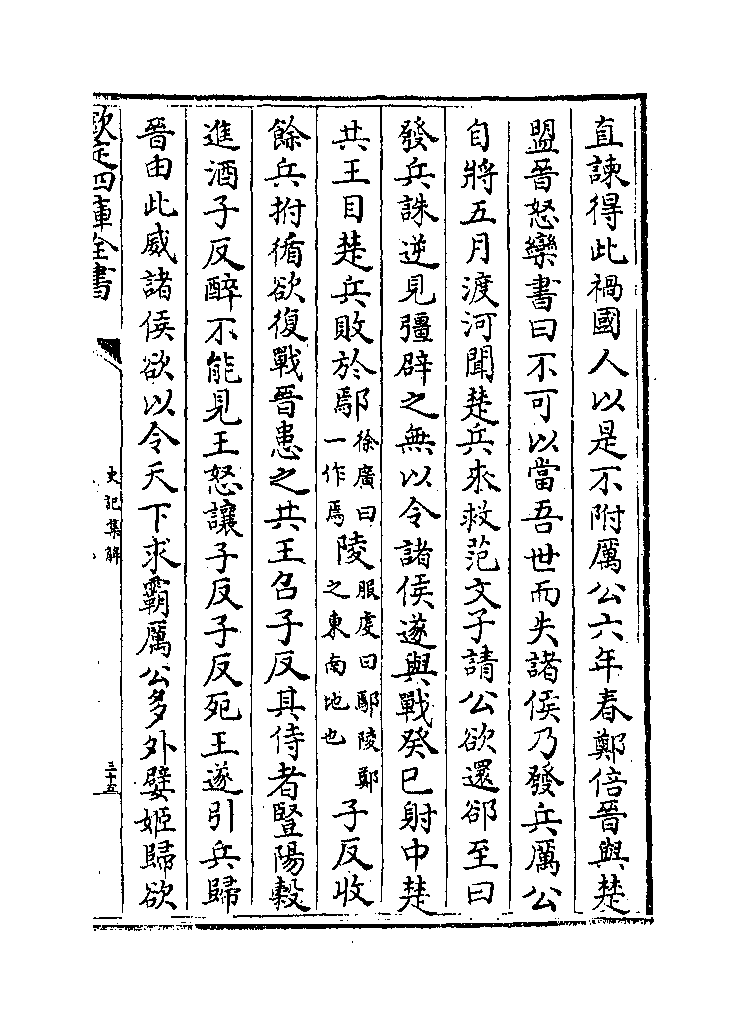 直諫得此禍國人以是不附厲公六年春鄭倍晉與楚
盟晉怒欒書曰不可以當吾世而失諸侯乃發兵厲公
自將五月渡河聞楚兵來救范文子請公欲還郤至曰
發兵誅逆見彊辟之無以令諸侯遂與戰癸巳射中楚
共王目楚兵敗於鄢徐廣曰一作焉陵服虔曰鄢陵鄭之東南地也子反收
餘兵拊循欲復戰晉患之共王召子反其侍者豎陽穀
進酒子反醉不能見王怒讓子反子反死王遂引兵歸
晉由此威諸侯欲以令天下求霸厲公多外嬖姬歸欲
欽定四庫全書
史記集解
三十五